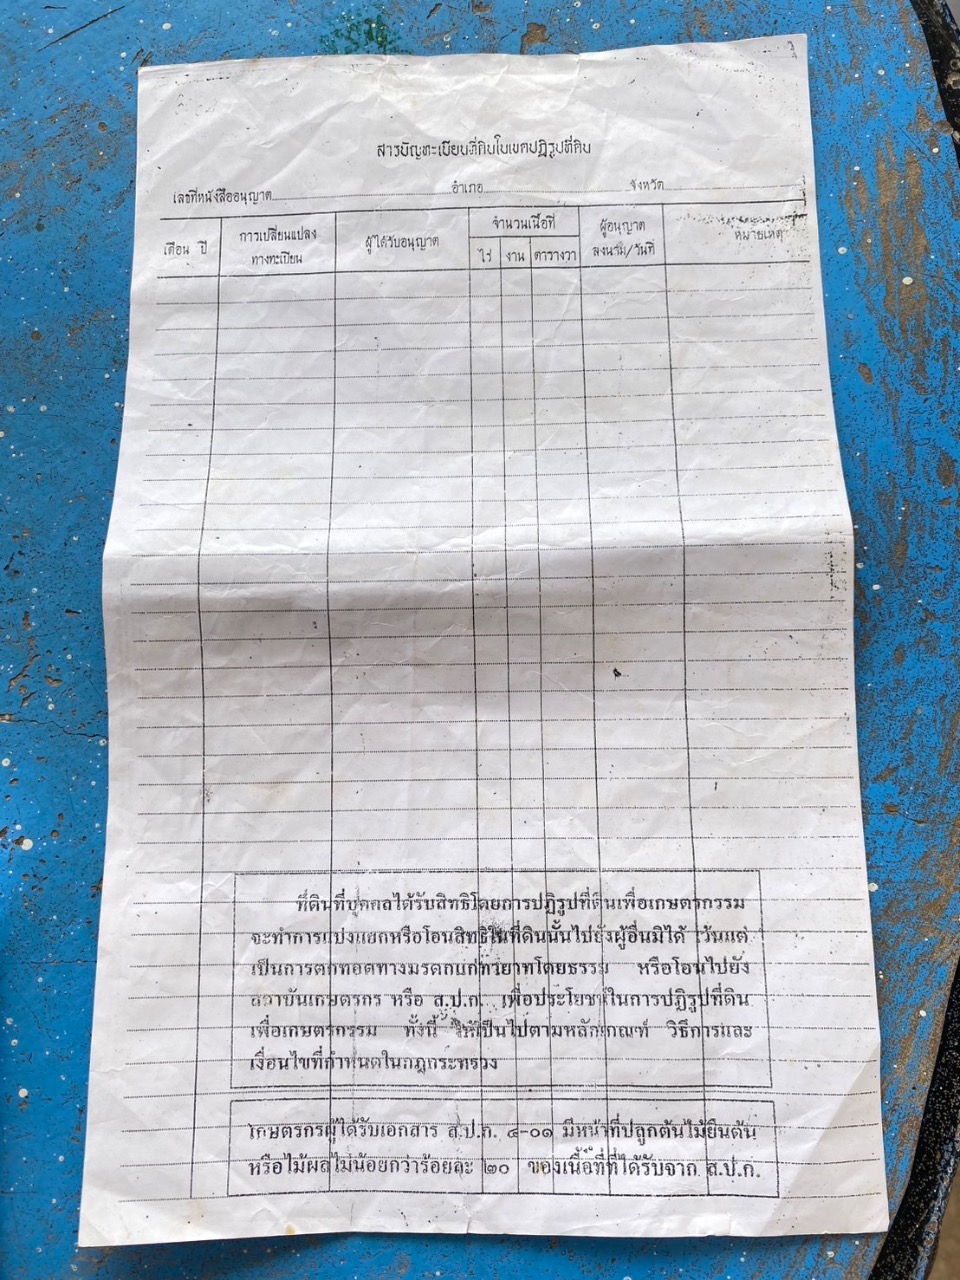 สารบัญทะเบียนที่ดินในเขตปฏิรูปที่ดิน
เลขที่หนังสืออนุญาต อำเภอ จังหวัด
เดือน ปี การเปลี่ยนแปลง ผู้ได้รับอนุญาต จำนวนเนื้อที่ ผู้อนุญาต หมายเหตุ
ทางทะเบียน ไร่ งาน ตารางวา ลงนาม/วันที่
ที่ดินที่บุคคลได้รับสิทธิโดยการปฏิรูปที่ดินเพื่อเกษตรกรรม
จะทำการแบ่งแยกหรือโอนสิทธิในที่ดินนั้นไปยังผู้อื่นมิได้ เว้นแต่
เป็นการตกทอดทางมรดกแก่ทายาทโดยธรรม หรือโอนไปยัง
สถาบันเกษตรกร หรือ ส.ป.ก. เพื่อประโยชน์ในการปฏิรูปที่ดิน
เพื่อเกษตรกรรม ทั้งนี้ ให้เป็นไปตามหลักเกณฑ์ วิธีการและ
เงื่อนไขที่กำหนดในกฎกระทรวง
เกษตรกรผู้ได้รับเอกสาร ส.ป.ก. ๔-๐๑ มีหน้าที่ปลูกต้นไม้ยืนต้น
หรือไม้ผลไม่น้อยกว่าร้อยละ ๒๐ ของเนื้อที่ที่ได้รับจาก ส.ป.ก.